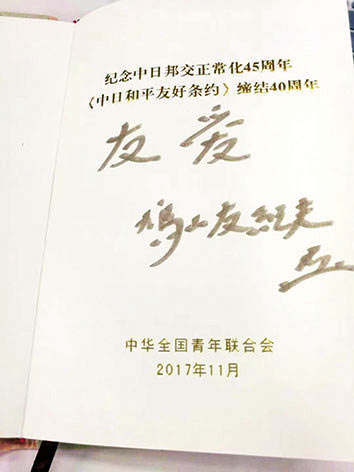 纪念中日邦交正常化45周年
《中日和平友好条约》缔结40周年
友爱
鸠山友纪夫
中华全国青年联合会
2017年11月